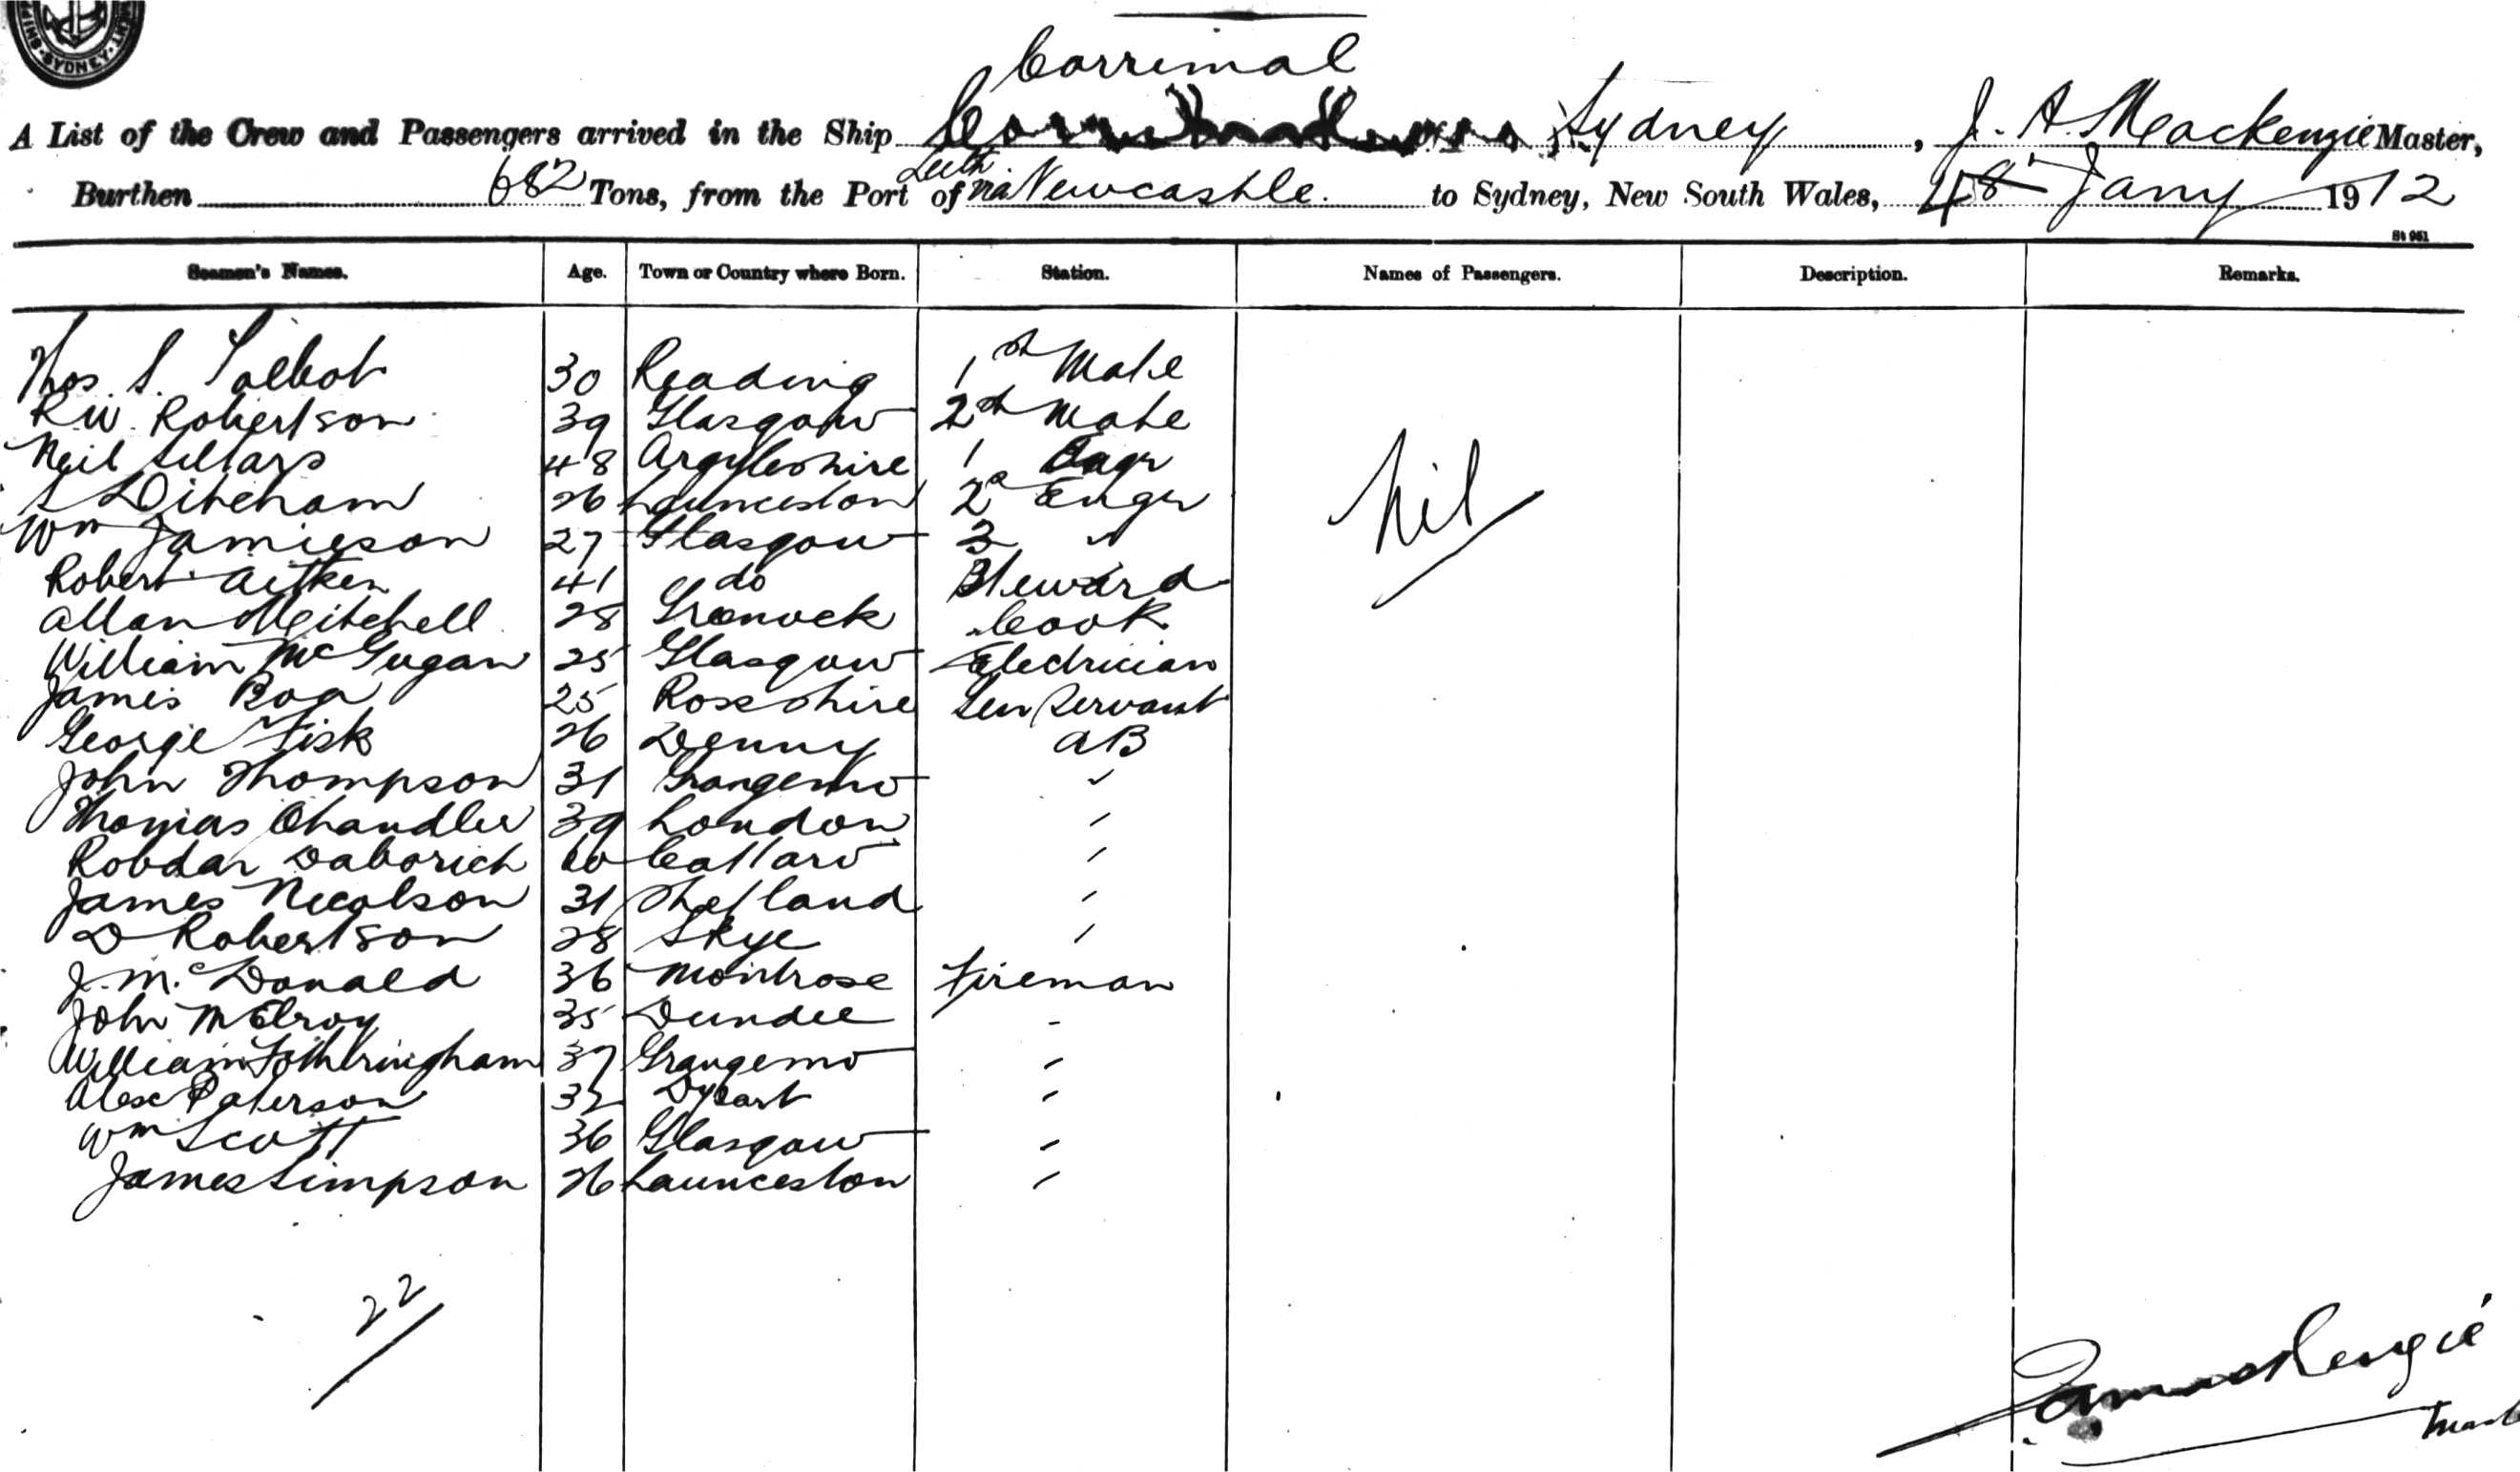 SHIPPING SYDNEY
Corrimal
A List of the Crew and Passengers arrived in the Ship Sydney, J. A. Mackenzie Master,
Leith
Burthen 682 Tons, from the Port of via Newcastle. to Sydney, New South Wales, Jany 1912
St 961
Seamen's Names. Age. Town or Country where Born. Station. Names of Passengers. Description. Remarks.
Thos S. Talbot 30 Reading 1st Mate
R W. Robertson 39 Glasgow 2nd Mate
Neil Sillars 48 Argyleshire 1 Engr
S Diteham 26 Launceston 2d Engr
Wm Jamieson 27 Glasgow 3 "
Nil
Robert Aitken 41 do Steward
Allan Mitchell 28 Greenock Cook
William McGugan 25 Glasgow Electrician
James Boa 25 Rosshire Gen Servant
George Fisk 26 Denny AB
John Thompson 31 Grangemo "
Thomas Chandler 39 London "
Robdar Daborich 60 Cattaro "
James Nicolson 31 Shetland "
D Robertson 28 Skye "
J. McDonald 36 Montrose Fireman
John McElroy 35 Dundee "
William Fotheringham 37 Grangemo "
Alex Paterson 32 Dysart "
Wm Scott 36 Glasgow "
James Simpson 26 Launceston "
22
JAMacKenzie